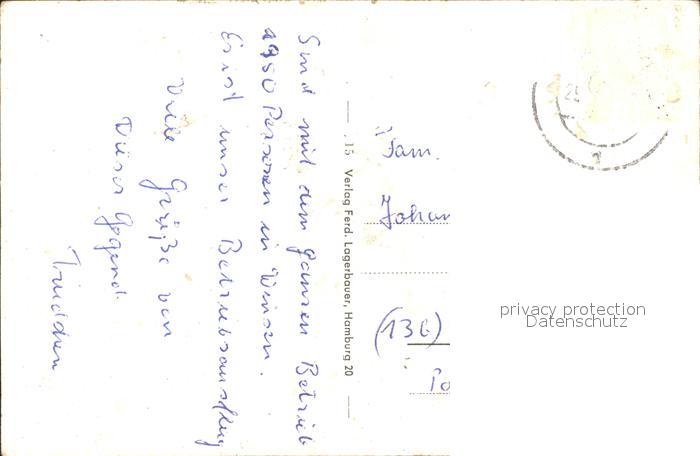 Sind mit dem ganzen Betrieb
1950 Personen in Winsen.
Es ist unser Betriebsausflug
Viele Grüße von
Dieser Gegend
15 Verlag Ferd. Lagerbauer, Hamburg 20
Fam.
Johan
(13b)
To
privacy protection
Datenschutz